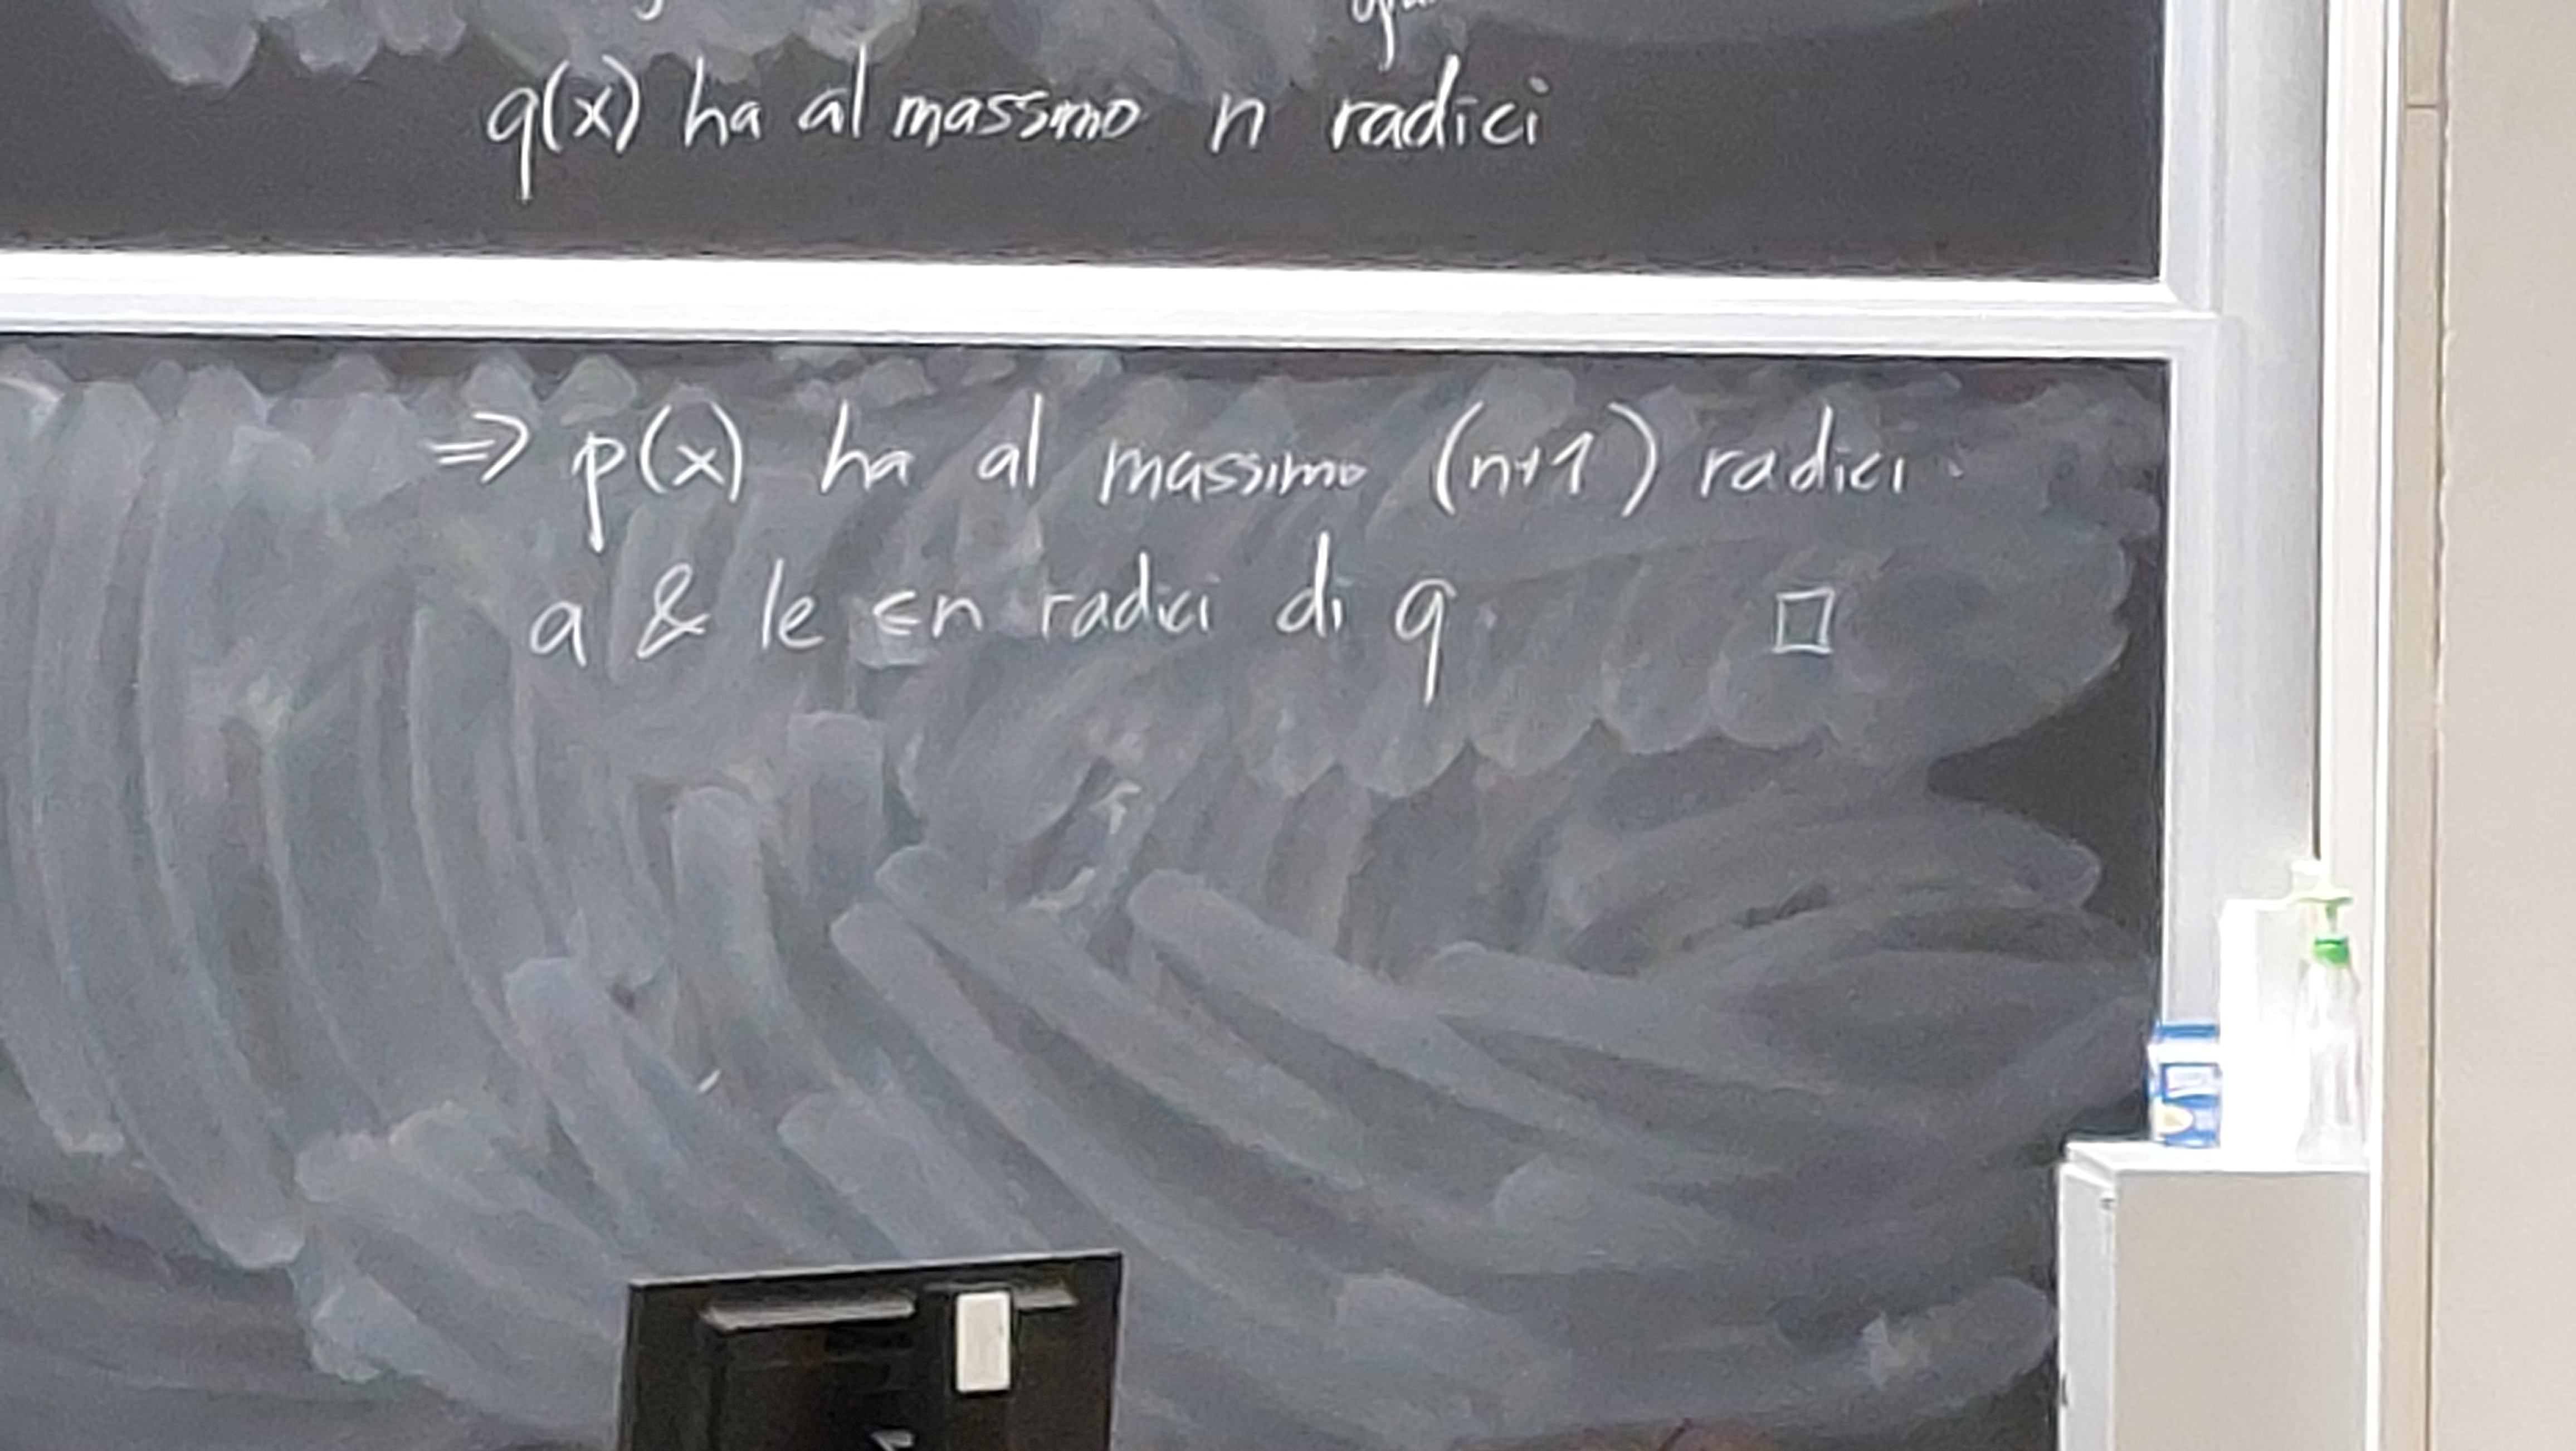 q(x) ha al massmo n radici
=> p(x) ha al massimo (n+1) radici.
a & le ≤n radici di q.